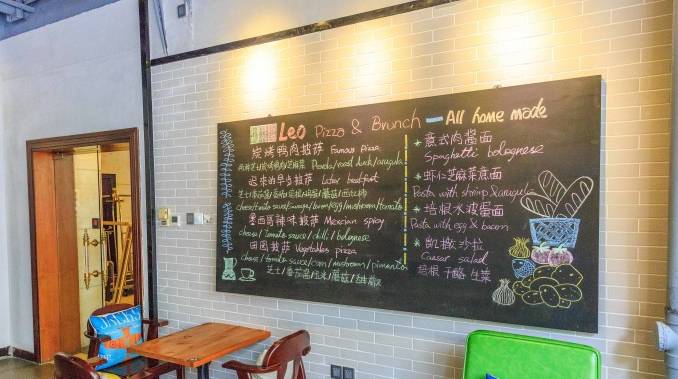 Leo Pizza & Brunch — All home made
炭烤鸭肉披萨 Famous Pizza
roast duck/arugula
迟来的早歩披萨 Later breakfast
cheese/tomato sauce/sausage/bacon/egg/mushroom/tomato
墨西哥辣味披萨 Mexcian spicy
cheese/tomato sauce/chilli/bolognese
田园披萨 Vegetables pizza
cheese/tomato sauce/corn/mushroom/pimento
芝士/番茄酱/玉米/蘑菇/甜椒
意式肉酱面
Spaghetti bolognese
虾仁芝麻菜意面
Pasta with shrimp & arugula
培根水波蛋面
Pasta with egg & bacon
凯撒沙拉
Caesar salad
培根 干酪 生菜